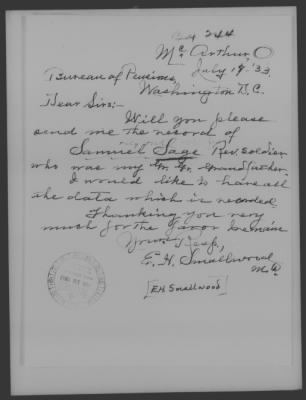 Box 244
Mc Arthur O
July 19 '33
Bureau of Pensions,
Washington D.C.
Dear Sirs:-
Will you please
send me the record of
Samuel Sage Rev. soldier
who was my Gr. Gr. Grandfather.
I would like to have all
the data which is recorded.
Thanking you very
much for the favor I remain
Yours Resp,
E. H. Smallwood
[EH Smallwood]